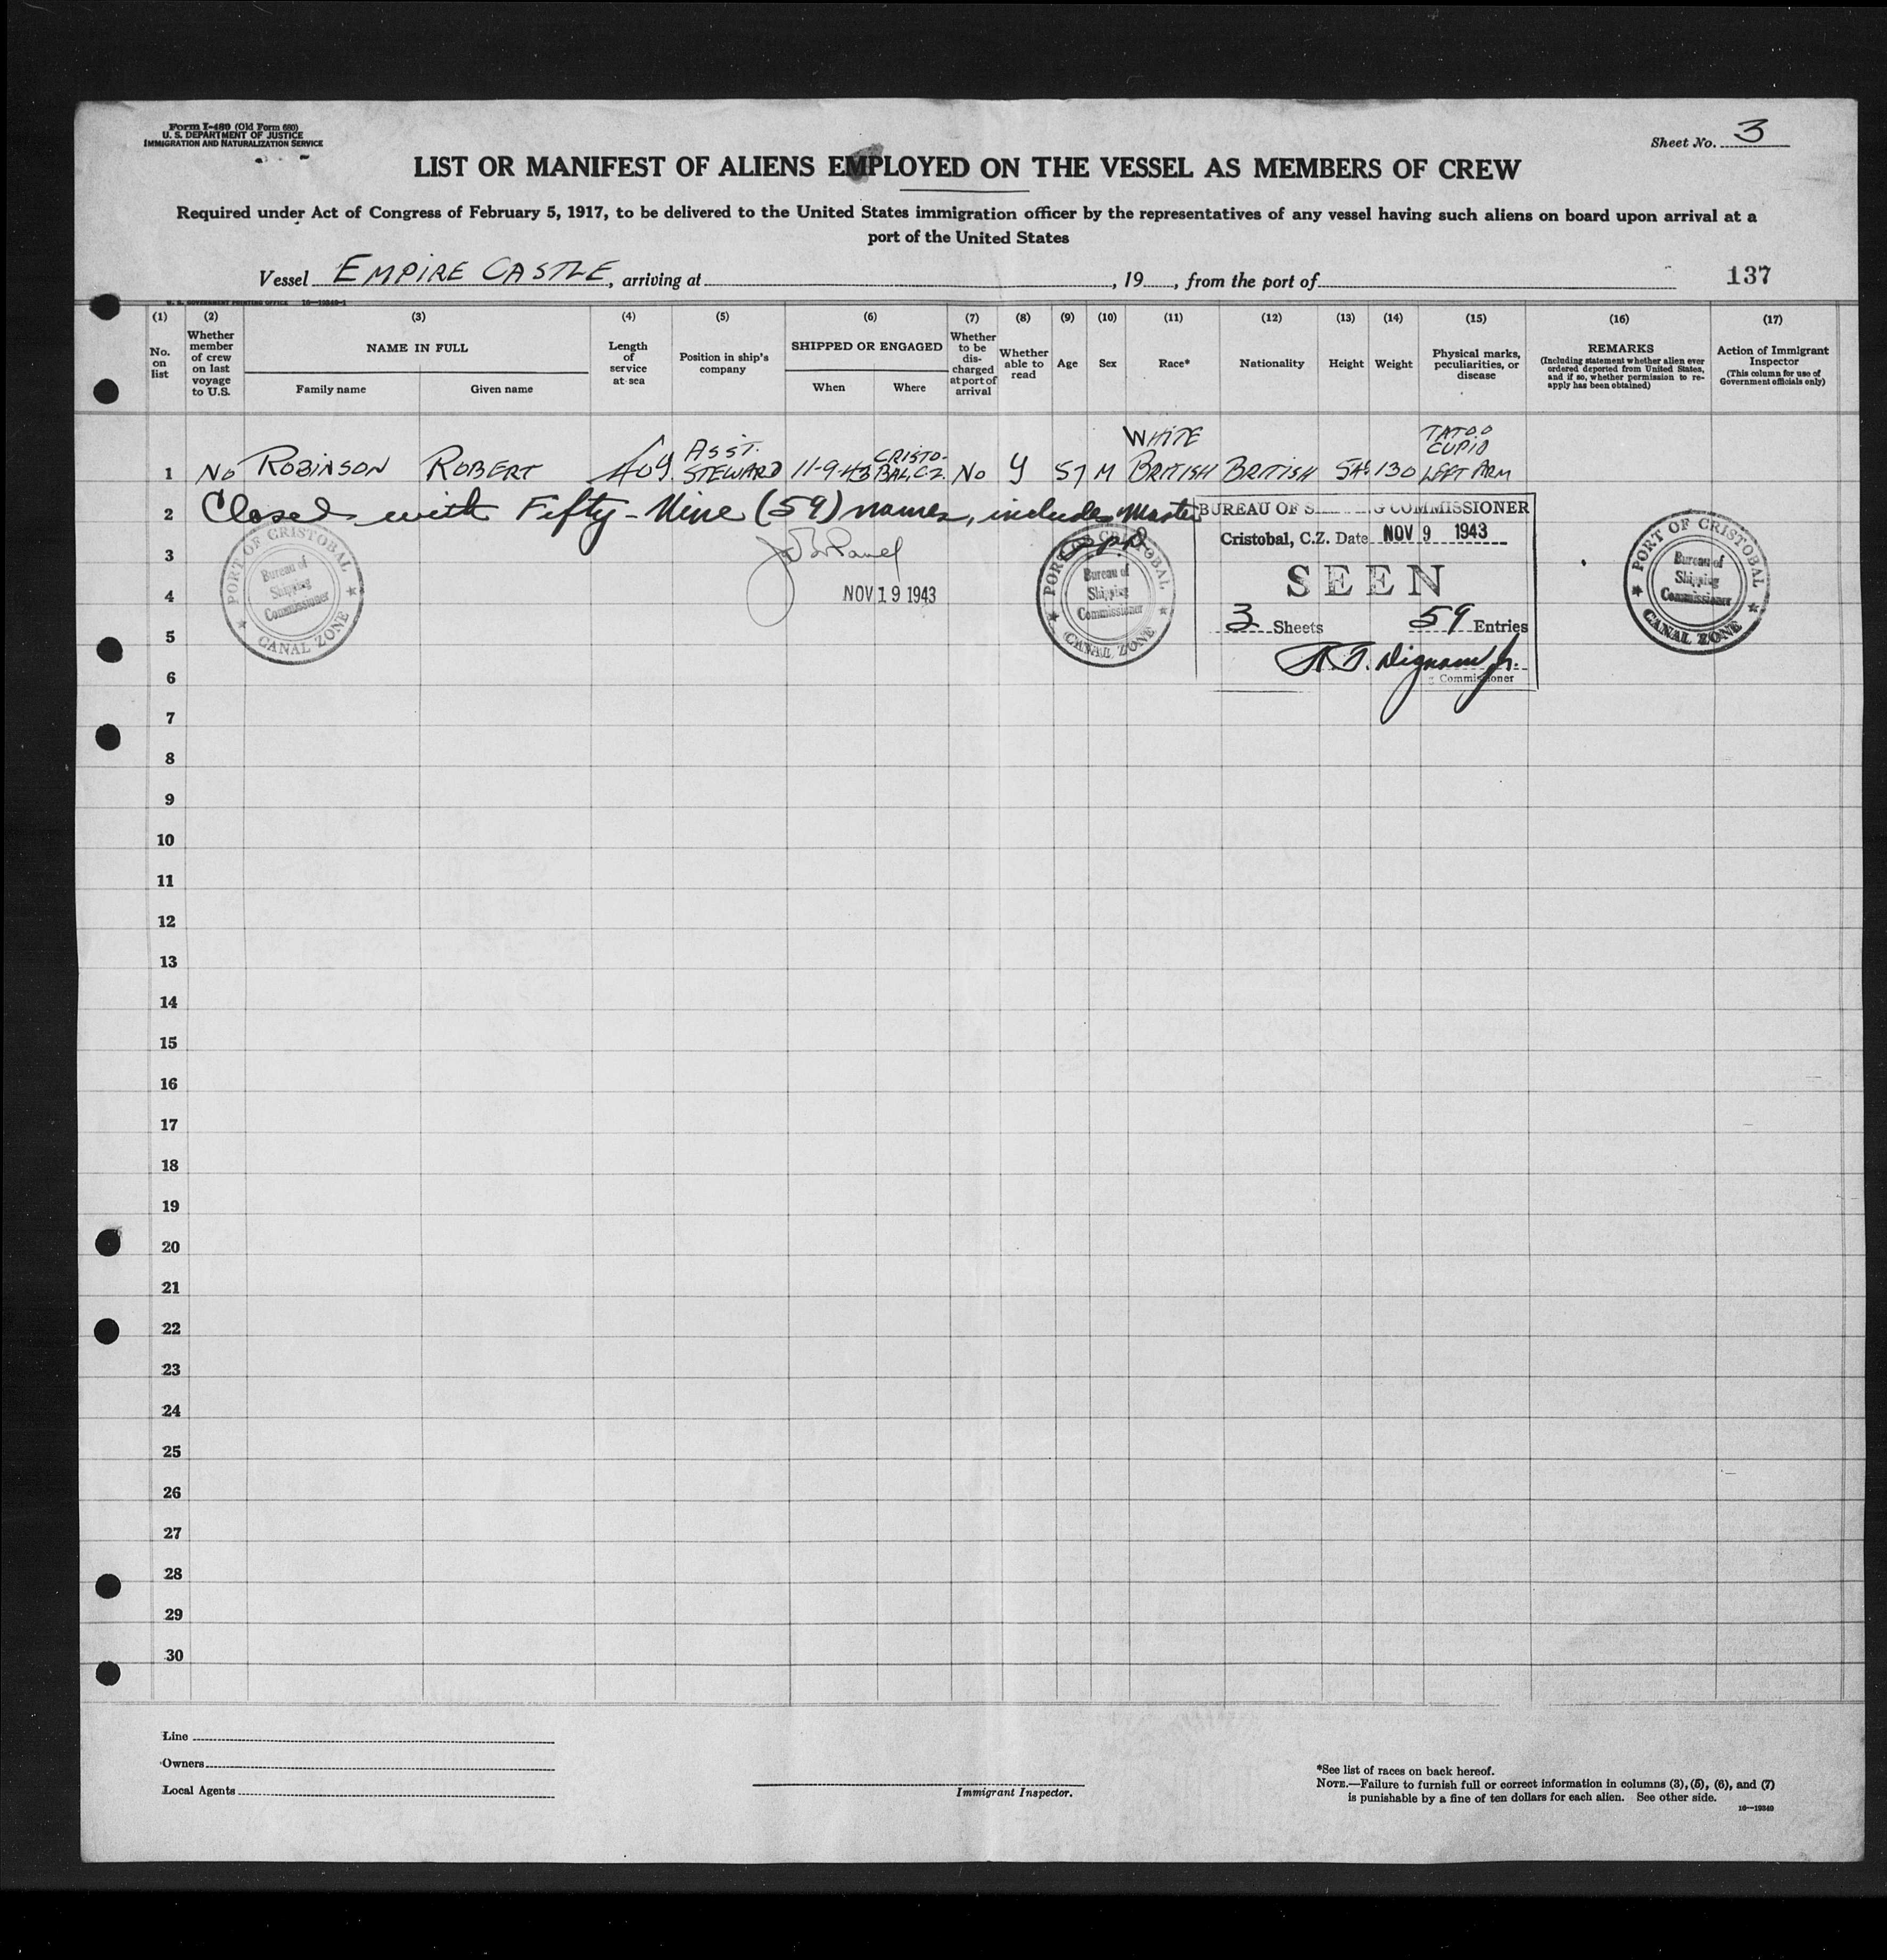 Form I-489 (Old Form 680)
U. S. DEPARTMENT OF JUSTICE
IMMIGRATION AND NATURALIZATION SERVICE
Sheet No. 3
LIST OR MANIFEST OF ALIENS EMPLOYED ON THE VESSEL AS MEMBERS OF CREW
Required under Act of Congress of February 5, 1917, to be delivered to the United States immigration officer by the representatives of any vessel having such aliens on board upon arrival at a
port of the United States
Vessel EMPIRE CASTLE, arriving at , 19 , from the port of
137
U. S. GOVERNMENT PRINTING OFFICE 16—19349-1
(1) (2) (3) (4) (5) (6) (7) (8) (9) (10) (11) (12) (13) (14) (15) (16) (17)
No. on list
Whether member of crew on last voyage to U.S.
NAME IN FULL
Family name
Given name
Length of service at sea
Position in ship's company
SHIPPED OR ENGAGED
When
Where
Whether to be discharged at port of arrival
Whether able to read
Age
Sex
Race*
Nationality
Height
Weight
Physical marks, peculiarities, or disease
REMARKS
(Including statement whether alien ever ordered deported from United States, and if so, whether permission to re-apply has been obtained)
Action of Immigrant Inspector
(This column for use of Government officials only)
1 No ROBINSON ROBERT 40y ASST. STEWARD 11-9-43 CRISTO-BAL, C.Z. No y 57 M WHITE BRITISH BRITISH 130 TATOO CUPID LEFT ARM
2 Closed with Fifty-Nine (59) names, includes Master
3
4
5
6
7
8
9
10
11
12
13
14
15
16
17
18
19
20
21
22
23
24
25
26
27
28
29
30
PORT OF CRISTOBAL
Bureau of
Shipping
Commissioner
CANAL ZONE
NOV 19 1943
PORT OF CRISTOBAL
Bureau of
Shipping
Commissioner
CANAL ZONE
BUREAU OF S G COMMISSIONER
Cristobal, C.Z. Date NOV 9 1943
SEEN
3 Sheets 59 Entries
Dignam Jr.
Commissioner
PORT OF CRISTOBAL
Bureau of
Shipping
Commissioner
CANAL ZONE
Line
Owners
Local Agents
Immigrant Inspector.
*See list of races on back hereof.
NOTE.—Failure to furnish full or correct information in columns (3), (5), (6), and (7)
is punishable by a fine of ten dollars for each alien. See other side.
16—19349